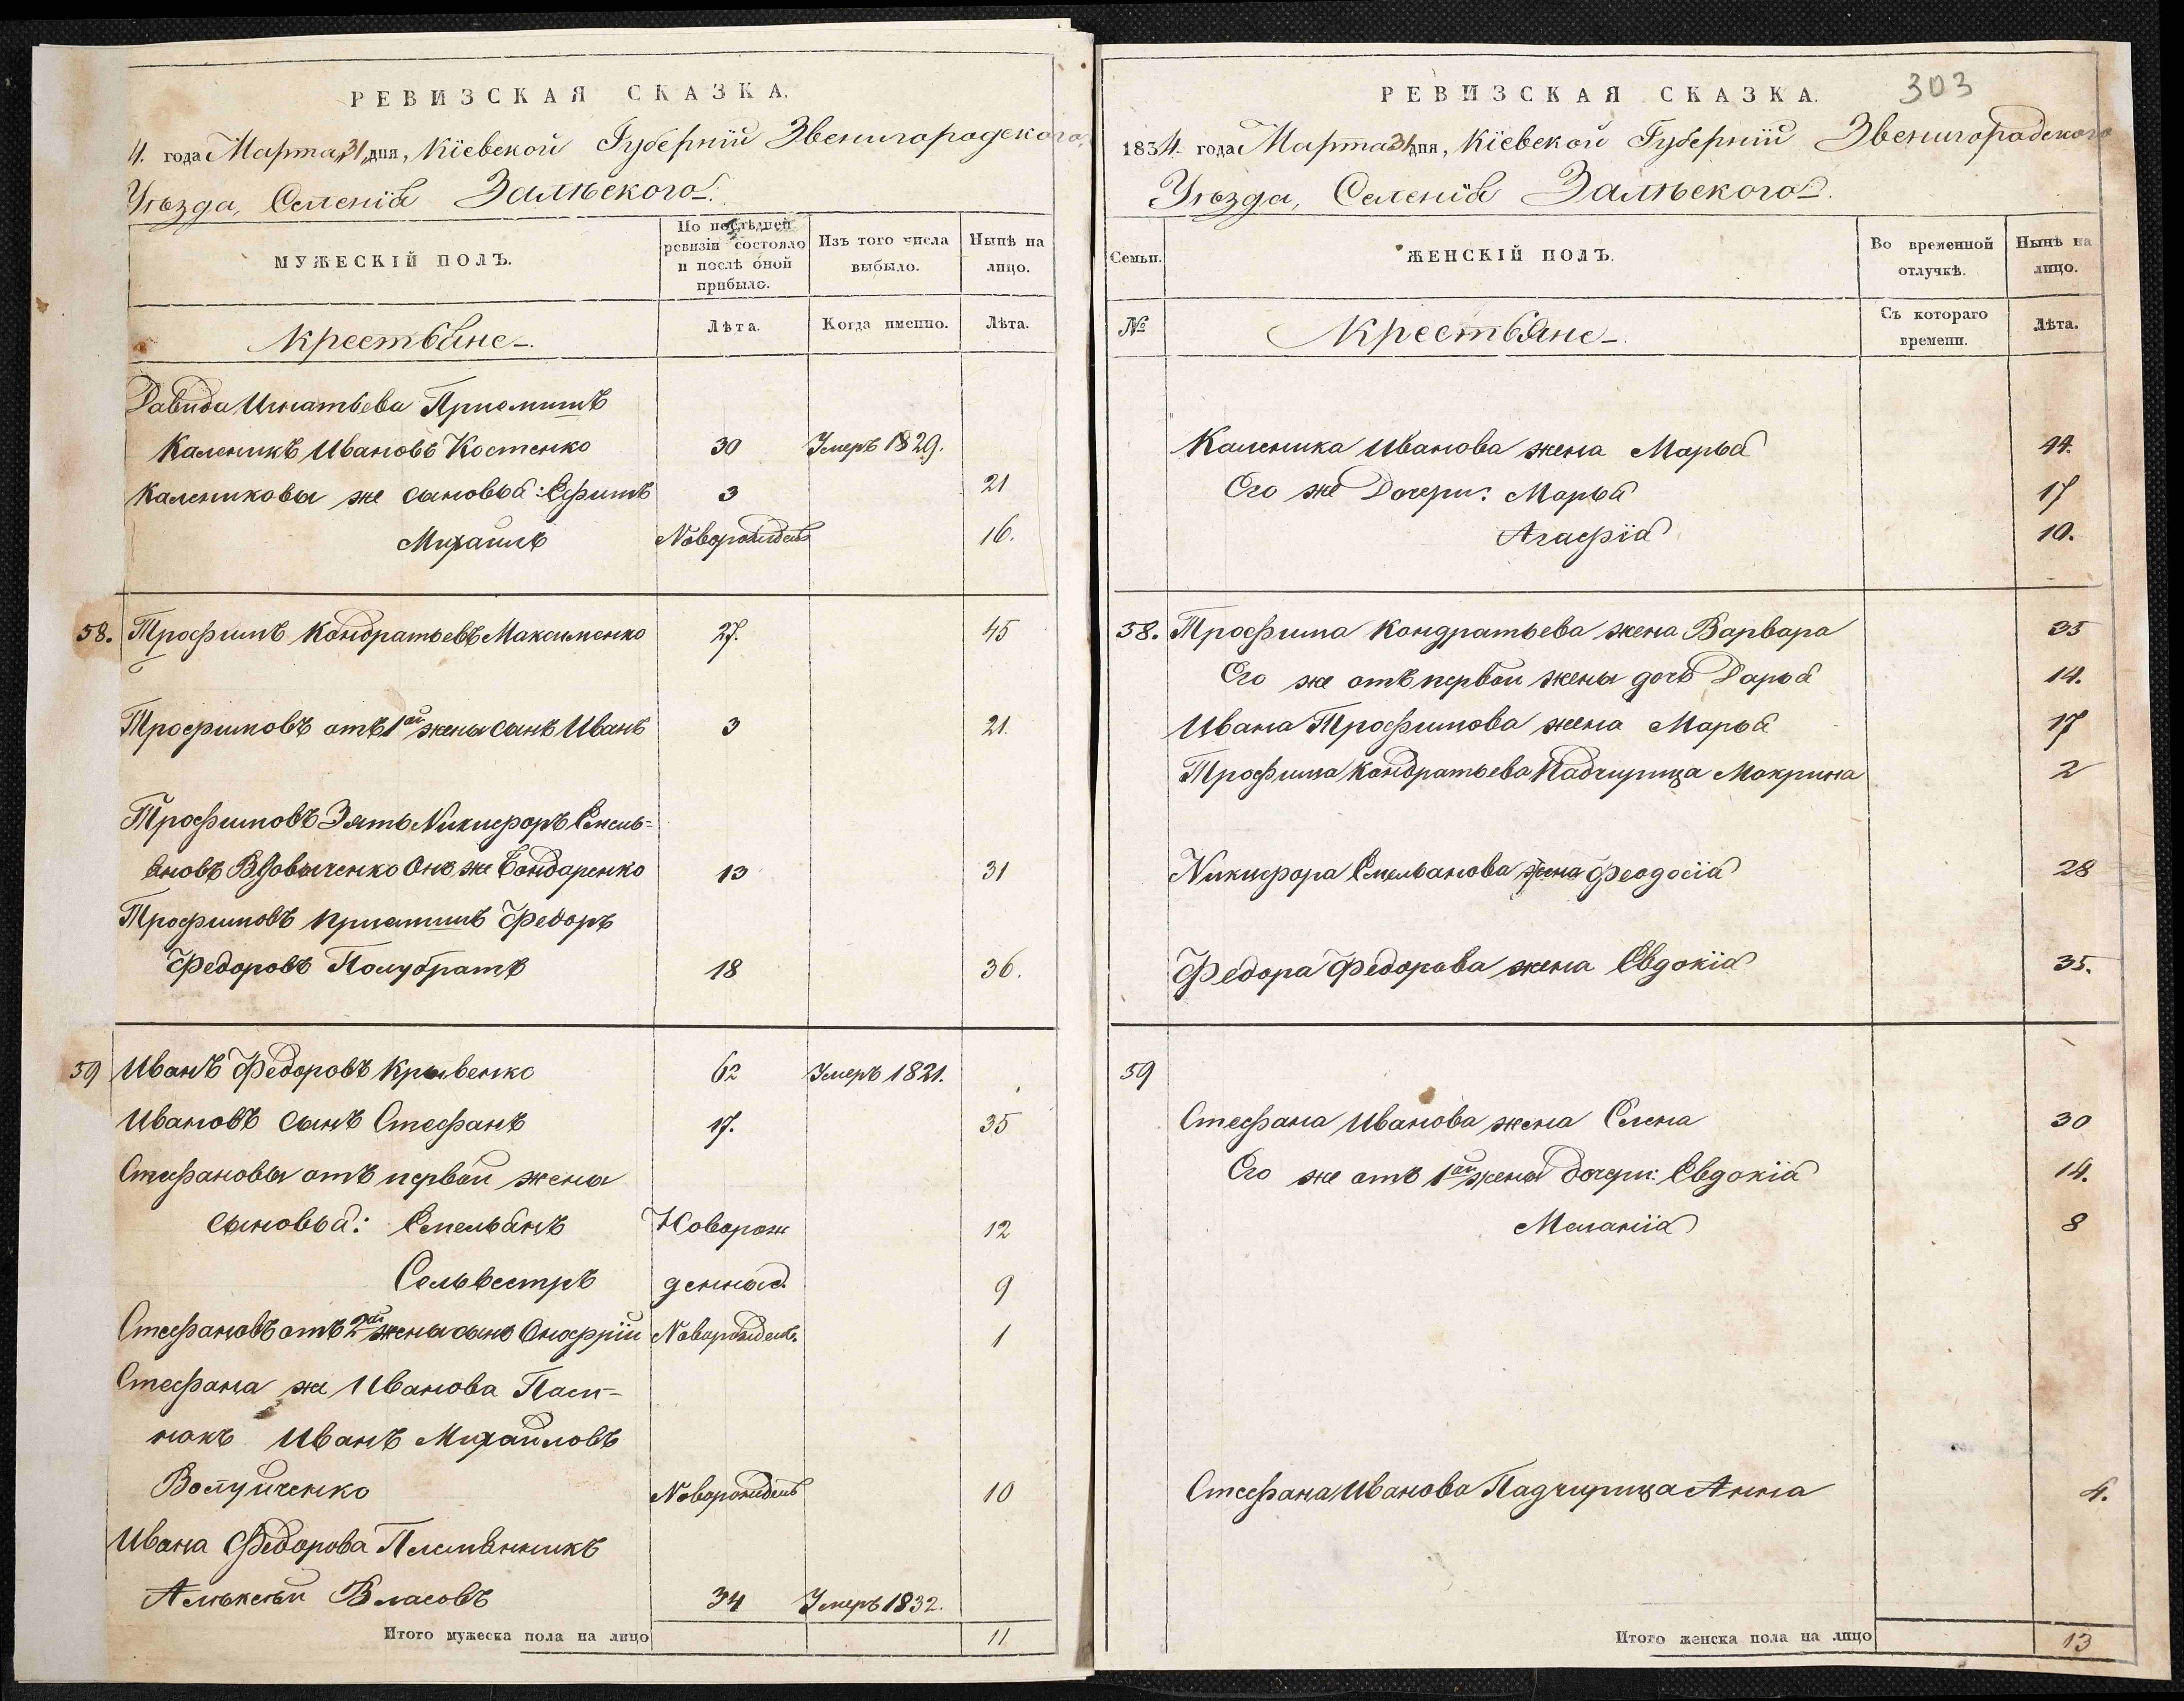 РЕВИЗСКАЯ СКАЗКА.
4. года Марта 31 дня, Кіевской Губерніи Звенигородского
Уѣзда, Селенія Залѣского.
МУЖЕСКІЙ ПОЛЪ.
По послѣдней ревизіи состояло и послѣ оной прибыло.
Изъ того числа выбыло.
Нынѣ на лицо.
Крестьяне
Лѣта.
Когда именно.
Лѣта.
Давида Игнатьева Приемишъ
Каленикъ Ивановъ Костенко 30 Умеръ 1829.
Калениковы же сыновья: Ефимъ 3 21
Михаилъ Новорожден 16.
58. Трофимъ Кондратьевъ Максименко 27. 45
Трофимовъ отъ 1ой жены сынъ Иванъ 3 21.
Трофимовъ Зять Никифоръ Емель=
яновъ Вдовыченко Онъ же Бондаренко 13 31
Трофимовъ приемишъ Федоръ
Федоровъ Полубратъ 18 36.
59 Иванъ Федоровъ Крывенко 62 Умеръ 1821.
Ивановъ сынъ Стефанъ 17. 35
Стефановы отъ первой жены
сыновья: Емельянъ Новорож 12
Сельвестръ денныя 9
Стефановъ отъ 2ой жены сынъ Онофрій Новорожден. 1
Стефана же Иванова Пасы=
нокъ Иванъ Михайловъ
Новорожден 10
Ивана Федорова Племянникъ
Алѣксѣй Власовъ 34 Умеръ 1832.
Итого мужеска пола на лицо 11
303
РЕВИЗСКАЯ СКАЗКА.
1834. года Марта 31 дня, Кіевской Губерніи Звенигорадского
Уѣзда, Селенія Залѣского.
Семьи.
ЖЕНСКІЙ ПОЛЪ.
Во временной отлучкѣ.
Нынѣ на лицо.
№
Крестьяне
Съ котораго времени.
Лѣта.
Каленика Иванова жена Марья 44.
Его же Дочери: Марья 17
Агафія 10.
58. Трофима Кондратьева жена Варвара 35
Его же отъ первой жены дочь Дарья 14.
Ивана Трофимова жена Марья 17
Трофима Кондратьева Падчирица Макрина 2
Никифора Емельянова жена Феодосія 28
Федора Федорава жена Евдокія 35.
59
Стефана Иванова жена Елена 30
Его же отъ 1ой жены дочери: Евдокія 14.
Меланія 8
Стефана Иванова Падчирица Анна 4.
Итого женска пола на лицо 13